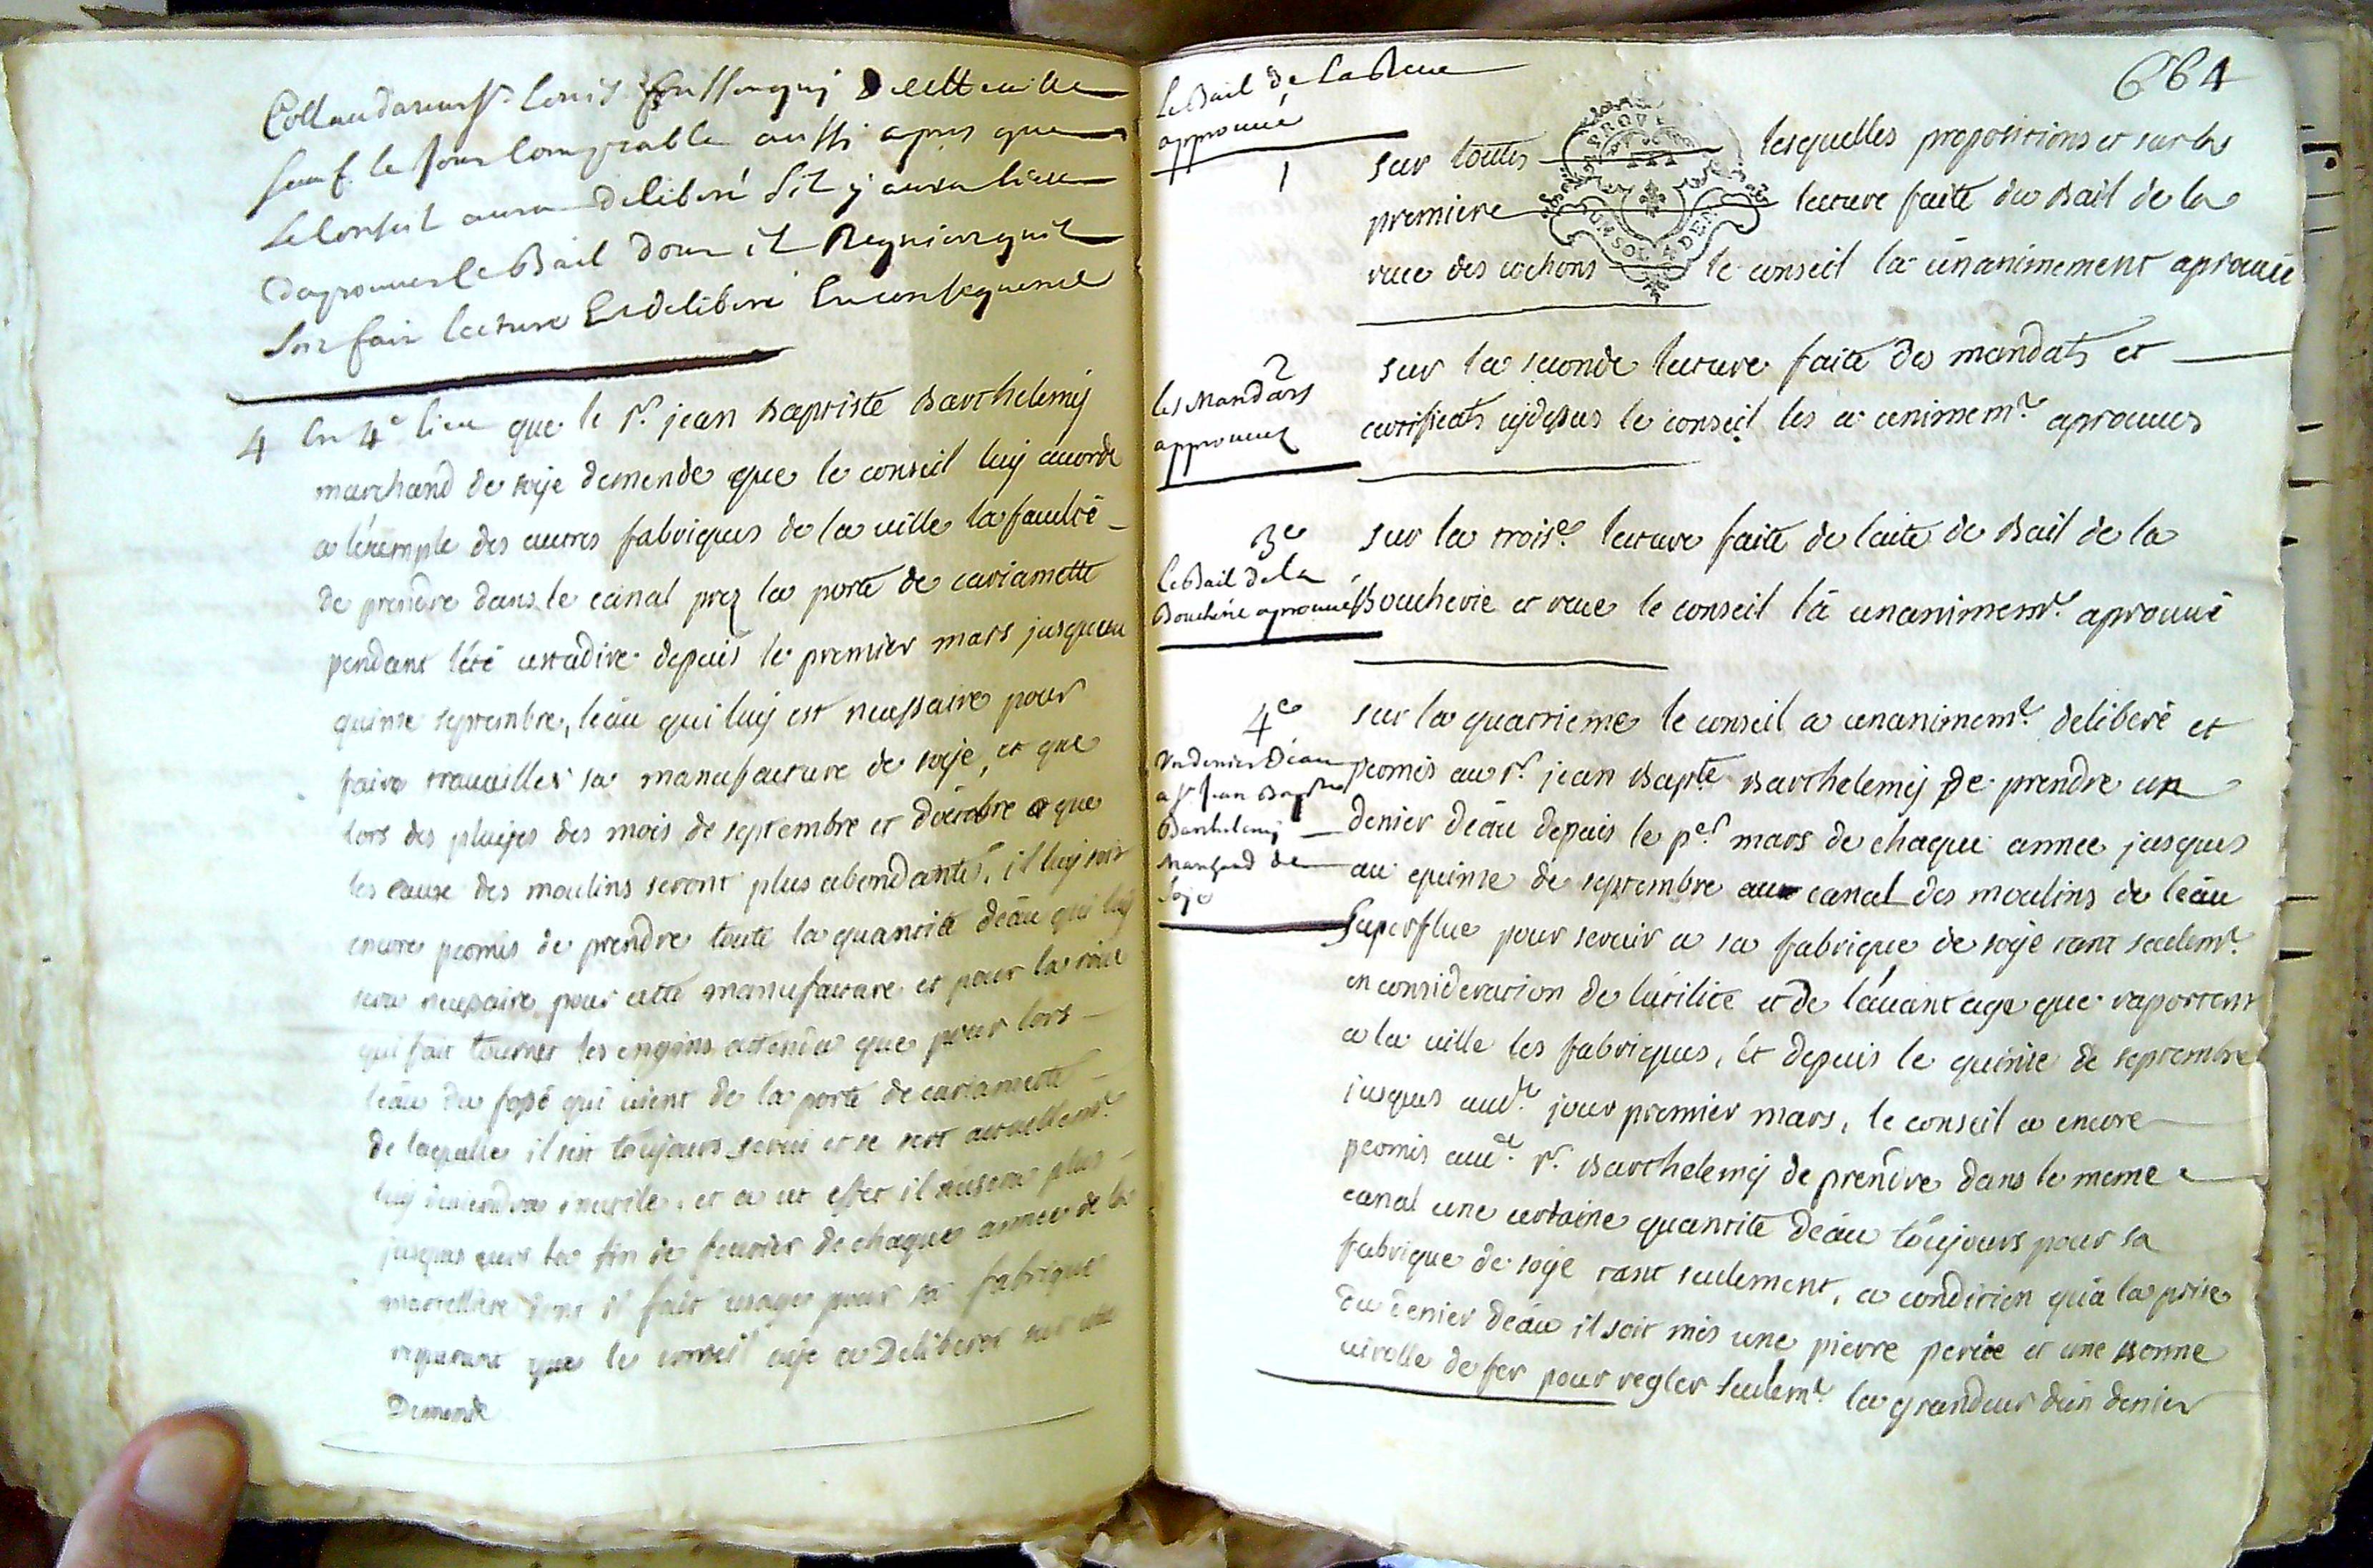 Collaudateur Sr. Louis de cette ville
sauf le jour comptable aussi apres que
le Conseil aura deliberé sil y aura lieu
daprouver le Bail dont il Requiert quil
soit fait lecture Et deliberé En consequence
4 En 4e. lieu que le Sr. jean Baptiste Barthelemij
marchand de soije demende que le conseil luij acorde
a léxemple des autres fabriques de la uille la faculté
de prendre dans le canal prez la porte de cariamette
pendant lété cestadire depuis le premier mars jusquau
quinse septembre, léau qui luij est necessaire pour
faire trauailler sa manufacture de soije, et que
lors des pluijes des mois de septembre et doctobre que
les eaux des moulins seront plus abondantes, il luij soit
encore permis de prendre toute la quantité déau qui luij
sera necessaire pour cette manufacture et pour la roüe
qui fait tourner les engins attendu que pour lors
léau du fossé qui uient de la porte de cariamette
de laquelle il sest toujours serui et se sert actuellemt.
luij deuiendra inutile, et a cet effet il nusera plus
jusques uers la fin de feurier de chaque année de la
martelliere dont il fait usage pour sa fabrique
requerant que le conseil aije a Deliberer sur cette
Demende
664
Le Bail de La Reue
approuué
1 sur toutes lesquelles propositions et sur la
premiere lecture faite du Bail de la
reue des cochons le conseil la únanimement aprouué
2 sur la seconde lecture faite des mandats et
les Mandats
approuuez
certificats cijdesus le conseil les a unimemt. aprouues
3e sur la troise. lecture faite de lacte de Bail de la
Le Bail de la
Boucherie aprouué
Boucherie et reue le conseil lá unanimemt. aprouué
4e sur la quatrieme le conseil a unanimemt. deliberé et
Un denier d'éau
a Sr Jean Bapte
Barthelemij
Marchand de
soije
permis au Sr. jean Bapte. Barthelemij de prendre un
denier déau depuis le per. mars de chaque annee jusques
au quinse de septembre au canal des moulins de léau
superflue pour seruir a sa fabrique de soije tant seulemt.
en consideration de lútilité et de láuantage que raportent
a la uille les fabriques, Et depuis le quinse de septembre
jusques audt. jour premier mars, le conseil a encore
permis audt. Sr. Barthelemij de prendre dans le meme
canal une certaine quantité déau toújours pour sa
fabrique de soije tant seulement, a condition quá la prise
du denier déau il soit mis une pierre percée et une bonne
uirolle de fer pour regler seulemt. la grandeur dún denier